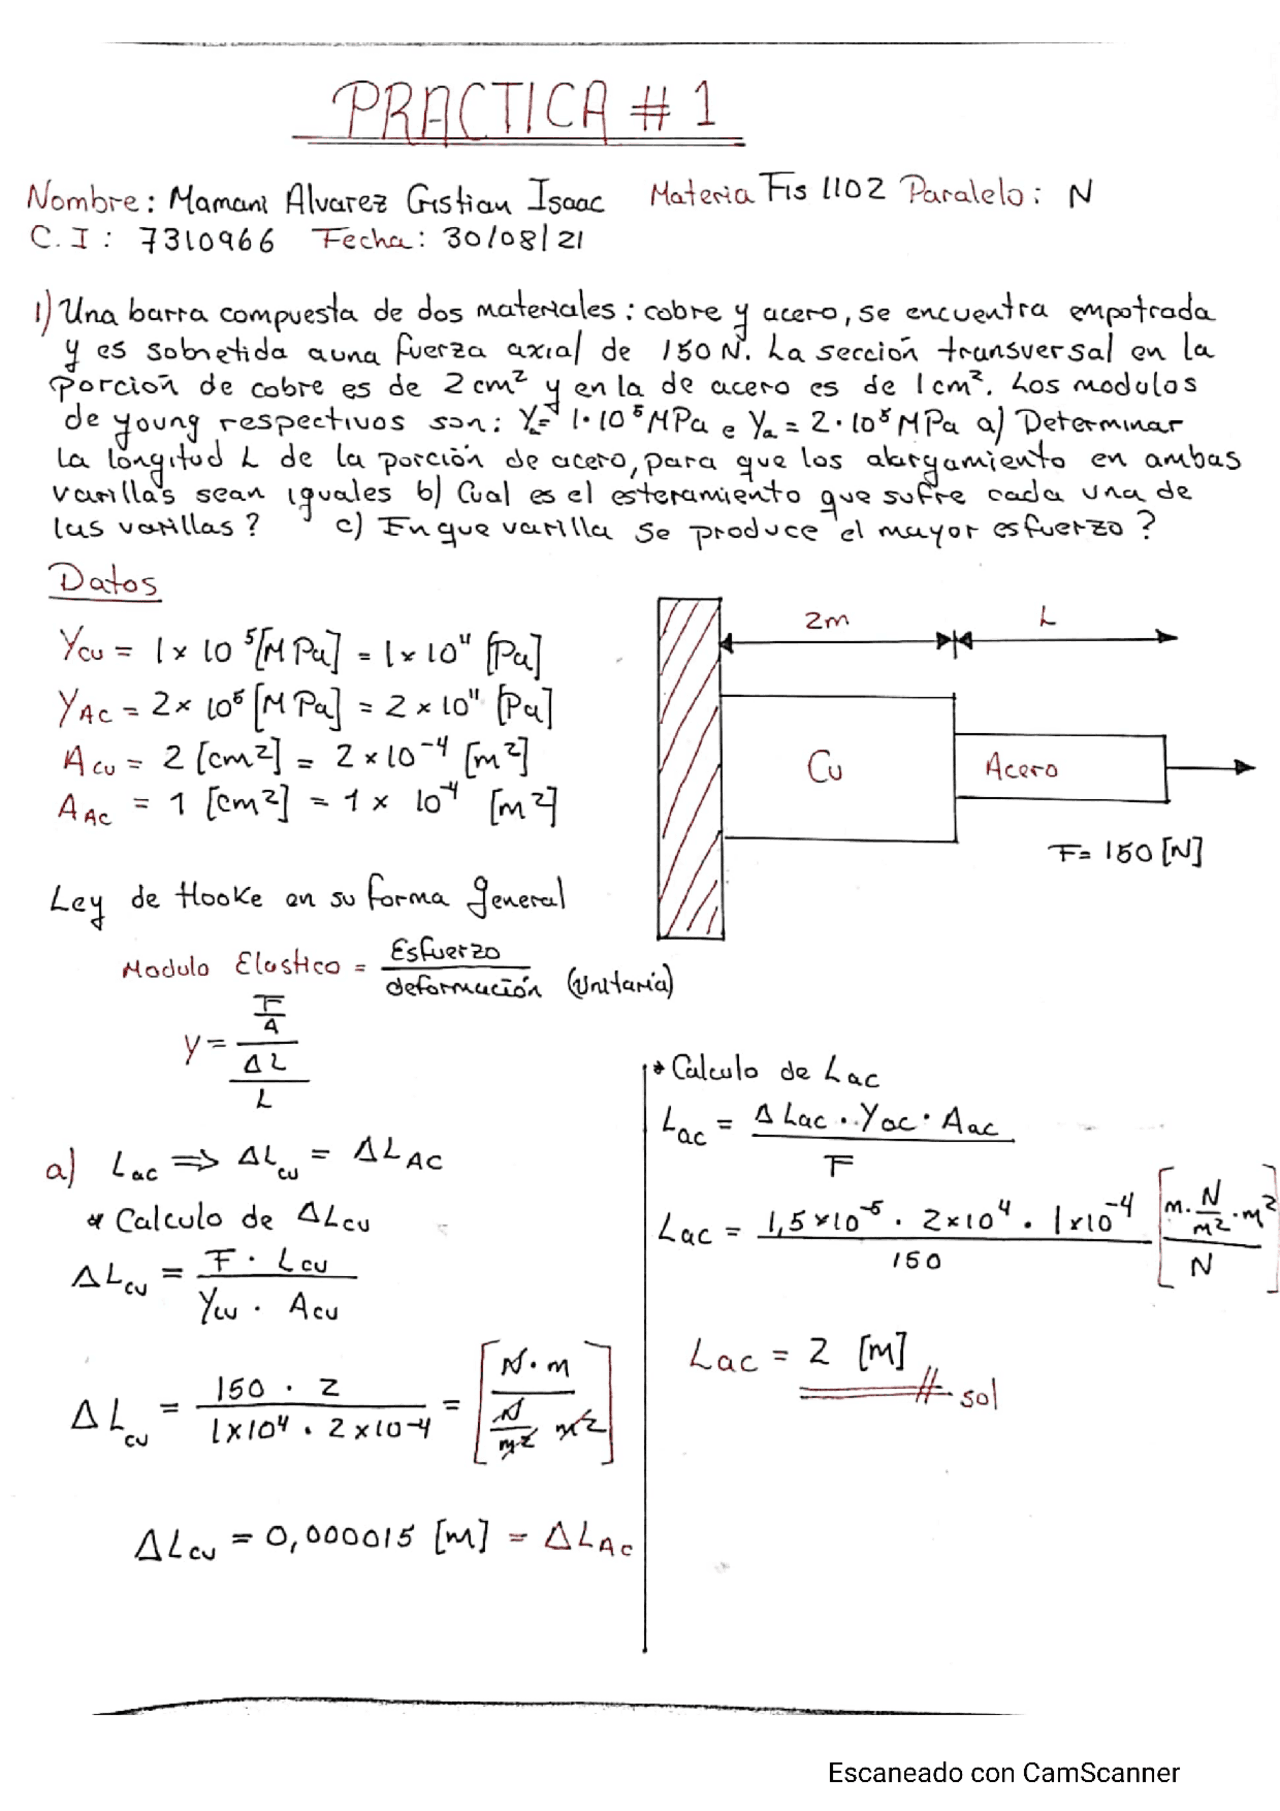 PRACTICA # 1
Nombre: Mamani Alvarez Cristian Isaac Materia Fis 1102 Paralelo: N
C.I: 7310966 Fecha: 30/08/21
1) Una barra compuesta de dos materiales: cobre y acero, se encuentra empotrada
y es sobmetida auna fuerza axial de 150 N. La sección transversal en la
porción de cobre es de 2 cm² y en la de acero es de 1 cm². Los modulos
de young respectivos son: Y = 1·10⁵ MPa e Ya = 2·10⁵ MPa a) Determinar
la longitud L de la porción de acero, para que los alargamiento en ambas
varillas sean iguales b) Cual es el esteramiento que sufre cada una de
las varillas? c) En que varilla se produce el mayor esfuerzo?
Datos
Ycu = 1 x 10⁵ [MPa] = 1 x 10¹¹ [Pa]
YAC = 2 x 10⁵ [MPa] = 2 x 10¹¹ [Pa]
Acu = 2 [cm²] = 2 x 10⁻⁴ [m²]
AAC = 1 [cm²] = 1 x 10⁻⁴ [m²]
2m L
Cu Acero
F = 150 [N]
Ley de Hooke en su forma general
Modulo Elastico = Esfuerzo / deformación (Unitaria)
Y = (F/A) / (ΔL/L)
a) Lac ⇒ ΔLcu = ΔLAC
* Calculo de ΔLcu
ΔLcu = F · Lcu / Ycu · Acu
ΔLcu = 150 · 2 / 1x10⁴ · 2x10⁻⁴ = [N·m / N/m² m²]
ΔLcu = 0,000015 [m] = ΔLAC
* Calculo de Lac
Lac = ΔLac · · Yac · Aac / F
Lac = 1,5x10⁻⁵ · 2x10⁴ · 1x10⁻⁴ / 150 [m · N/m² · m² / N]
Lac = 2 [m] // sol
Escaneado con CamScanner